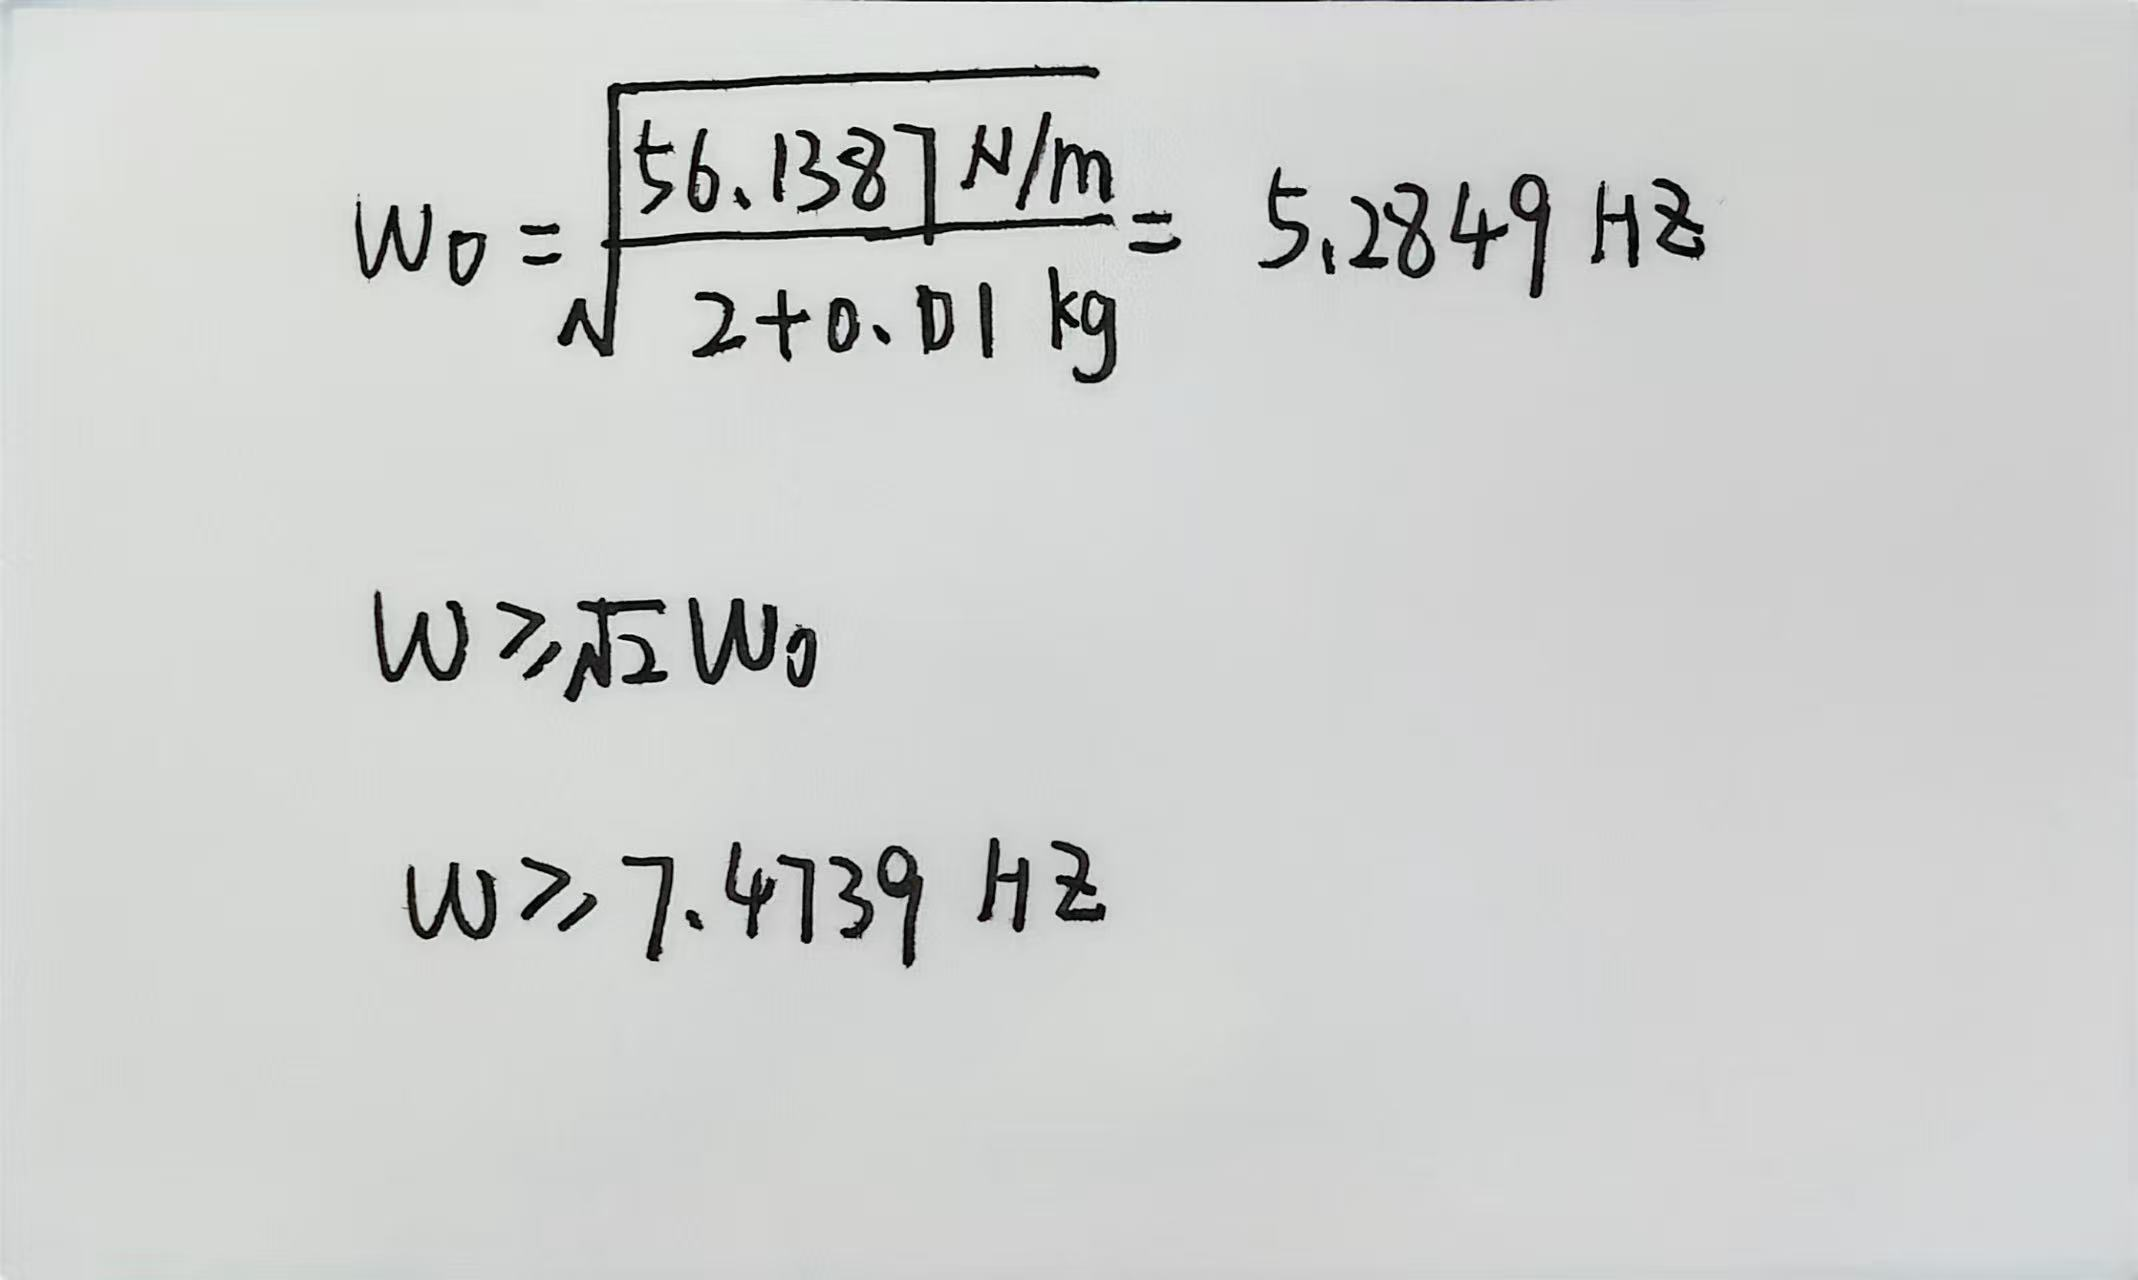 W₀ = √(56.1387 N/m / 2+0.01 kg) = 5.2849 HZ
W ≥ √2 W₀
W ≥ 7.4739 HZ